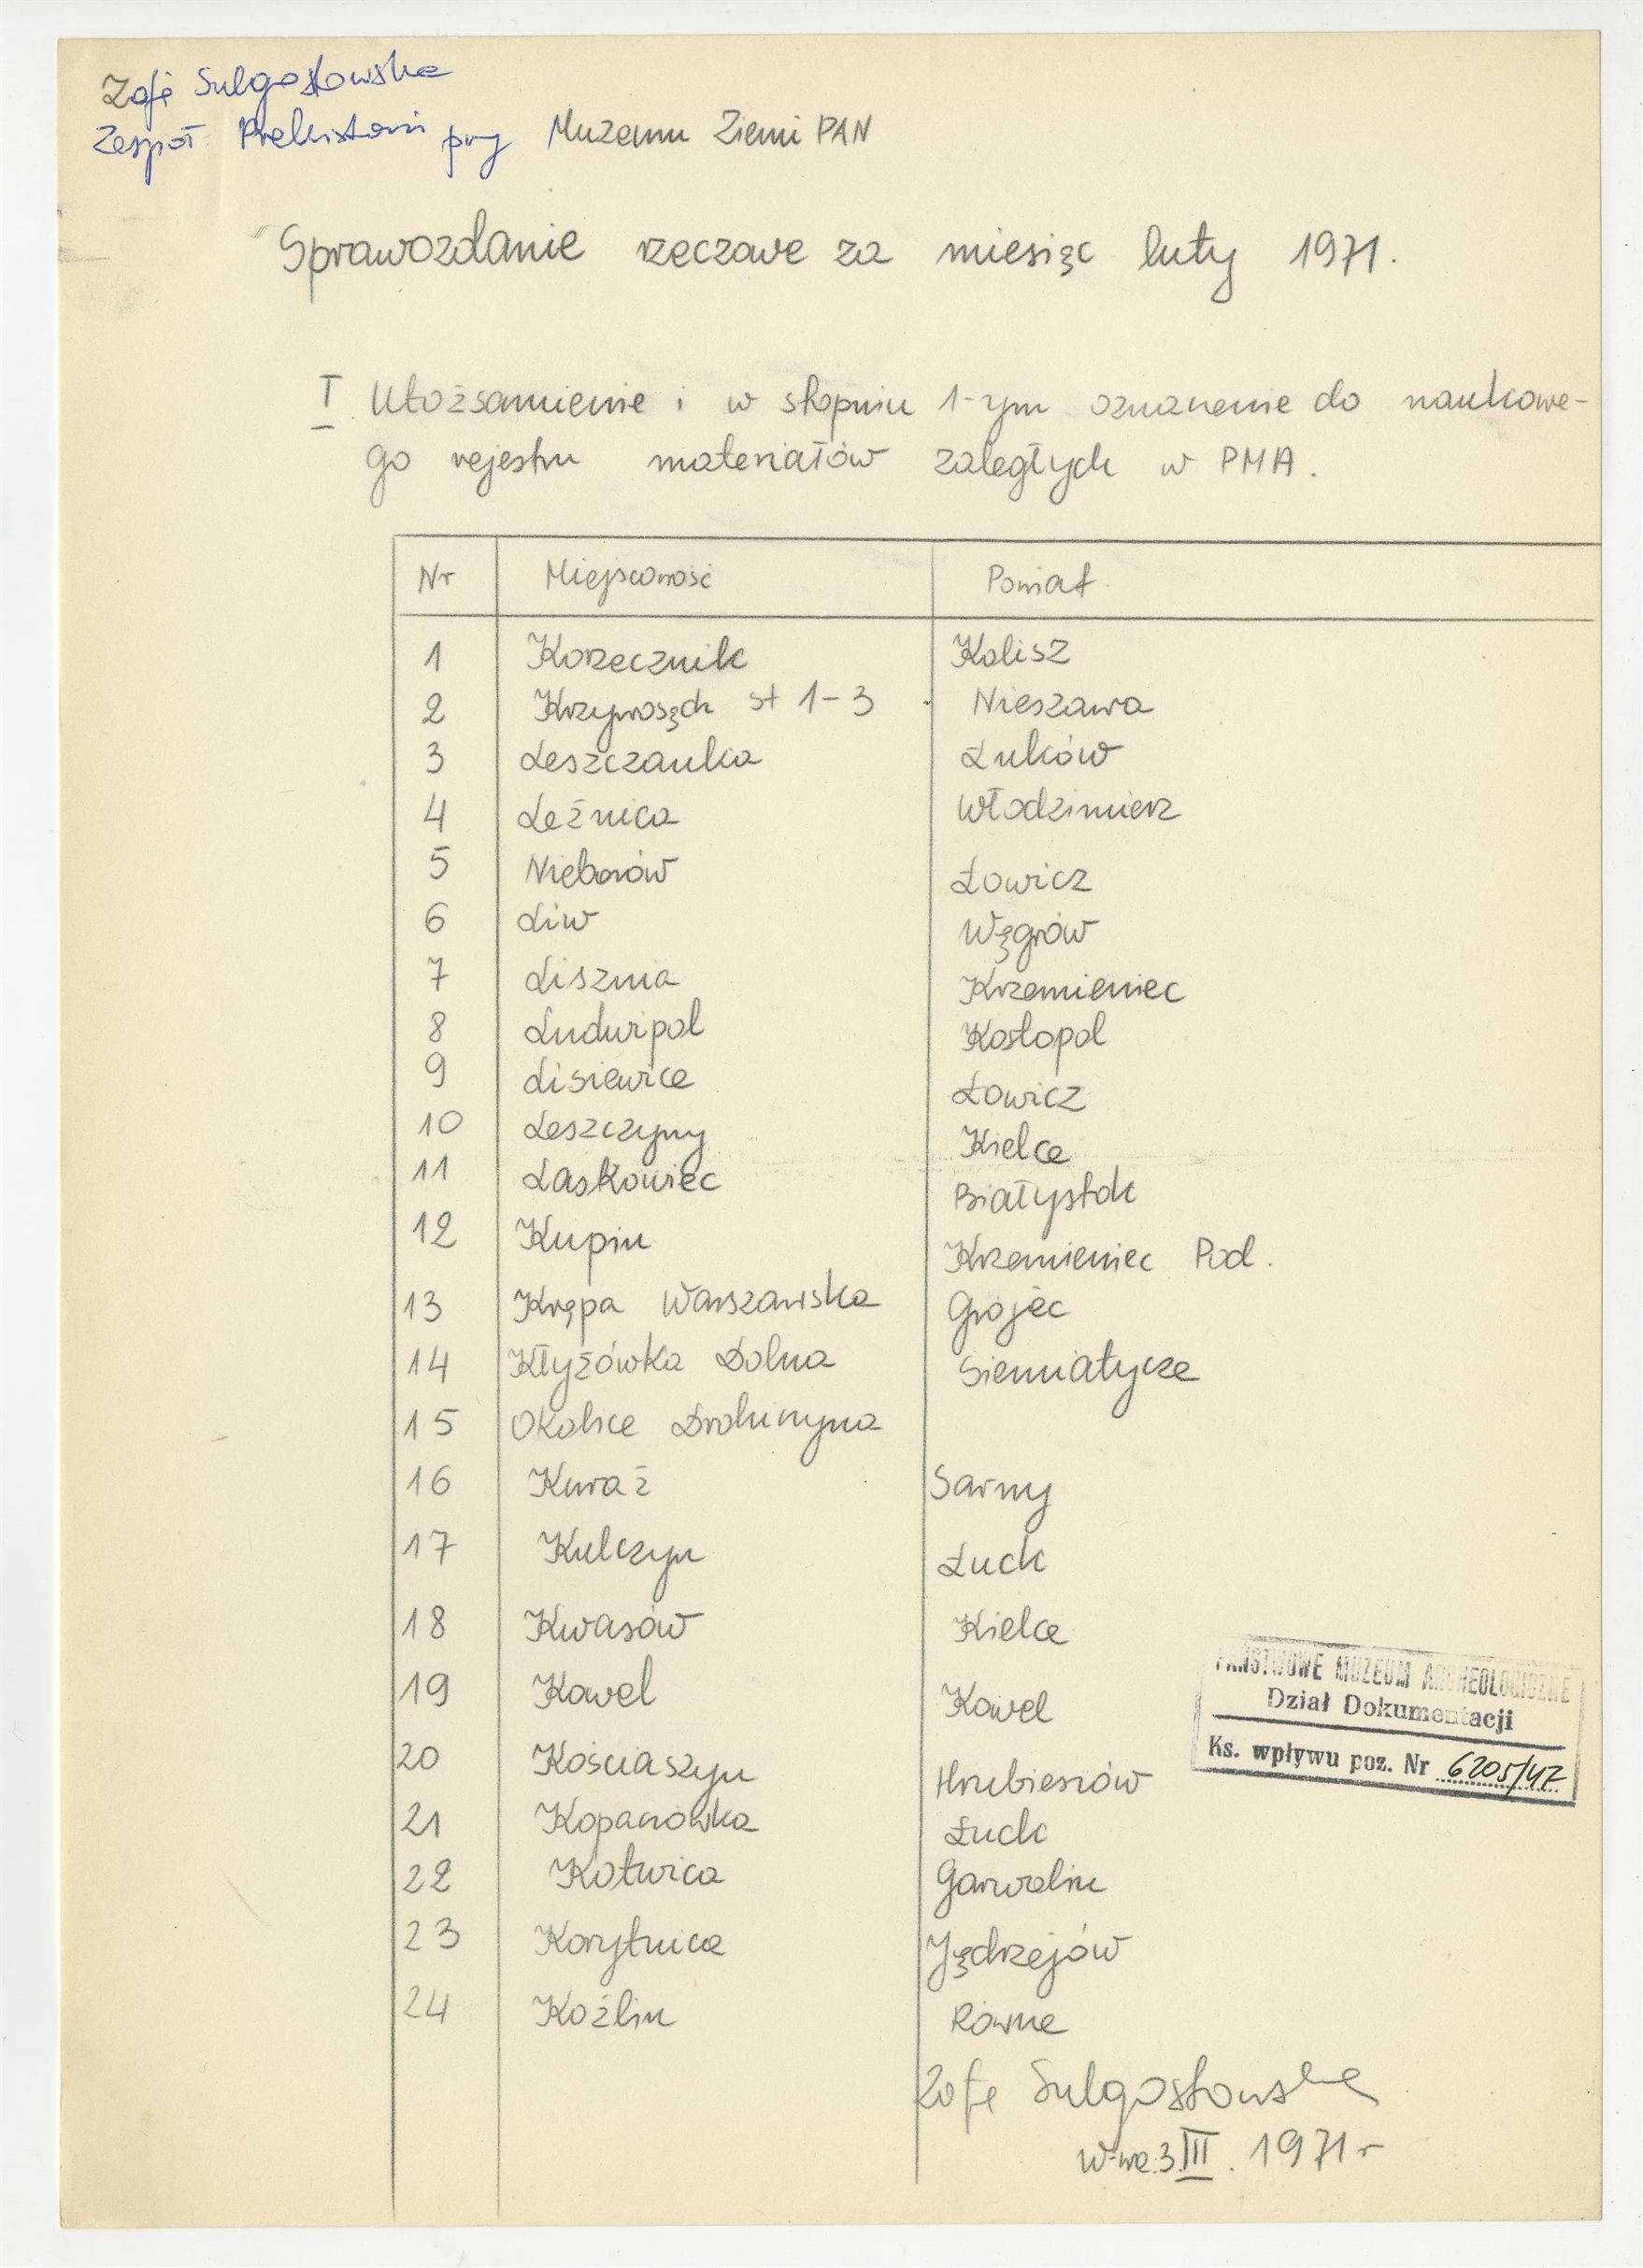 Zofia Sulgostowska
Zespół Prehistorii przy Muzeum Ziemi PAN
Sprawozdanie rzeczowe za miesiąc luty 1971.
I Utożsamienie i w stopniu 1-ym oznaczenie do naukowe-
go rejestru materiałów zaległych w PMA.
Nr Miejscowość Powiat
1 Korzecznik Kalisz
2 Krzywosądz st 1-3 Nieszawa
3 Leszczanka Łuków
4 Leźnica Włodzimierz
5 Nieborów Łowicz
6 Liw Węgrów
7 Lisznia Krzemieniec
8 Ludwipol Kostopol
9 Lisiewice Łowicz
10 Leszczyny Kielce
11 Laskowiec Białystok
12 Kupin Krzemieniec Pod.
13 Krępa Warszawska Grojec
14 Kłyżówka Dolna Siemiatycze
15 Okolice Drohiczyna
16 Kuraż Sarny
17 Kulczyn Łuck
18 Kwasów Kielce
19 Kowel Kowel
20 Kościaszyn Hrubieszów
21 Kopaczówka Łuck
22 Kotwica Garwolin
23 Korytnica Jędrzejów
24 Koźlin Równe
Zofia Sulgostowska
W-wa.3.III.1971 r
PAŃSTWOWE MUZEUM ARCHEOLOGICZNE
Dział Dokumentacji
Ks. wpływu poz. Nr 6205/47